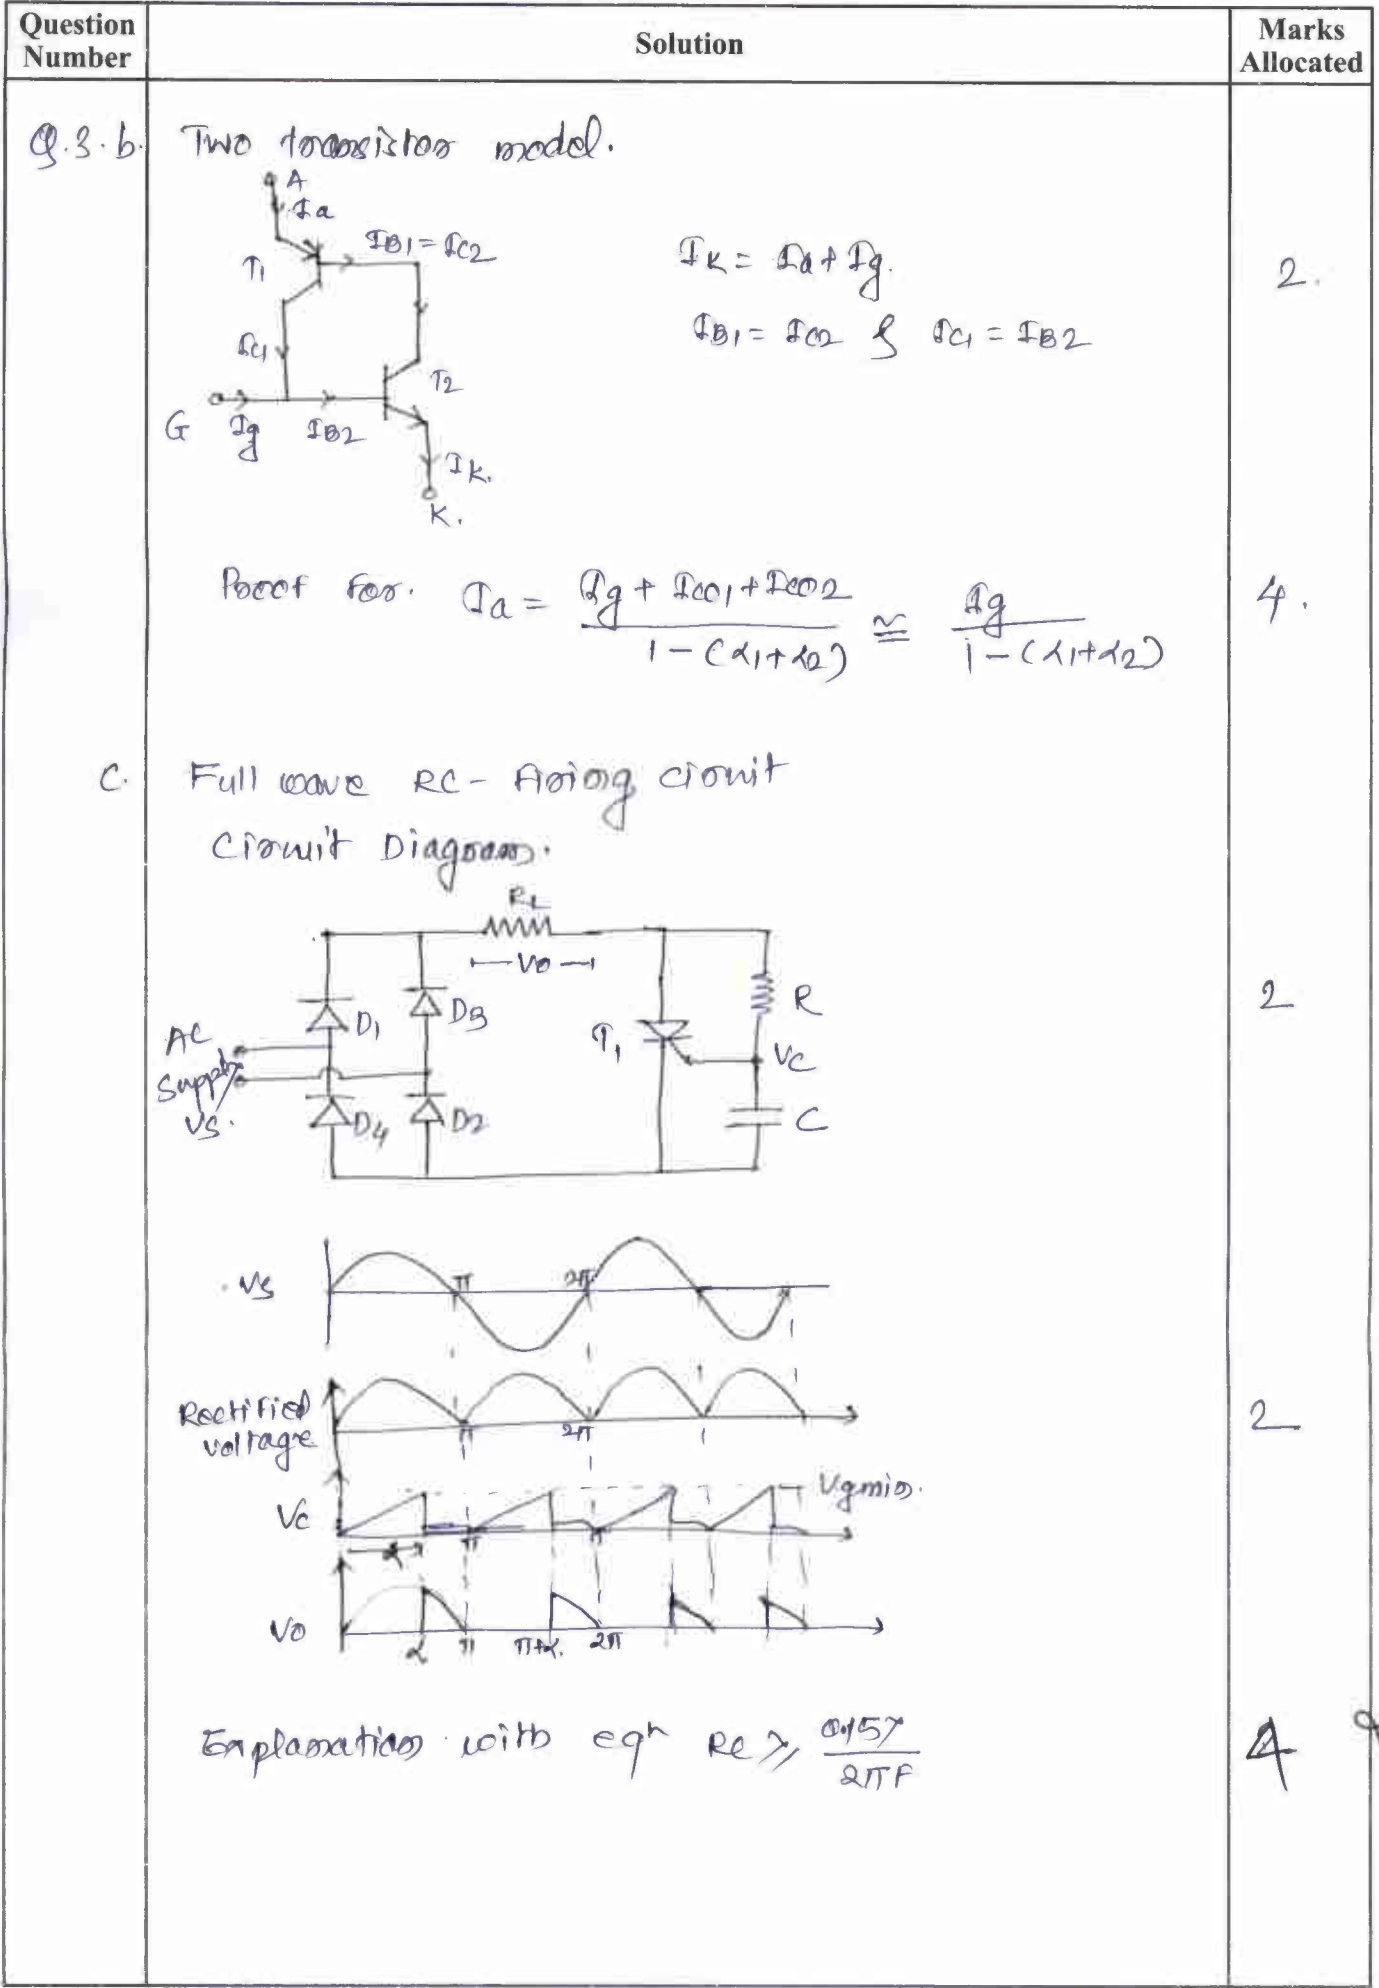 Question Number
Solution
Marks Allocated
Q.3.b. Two transistor model.
A
Ia
IB1 = IC2
T1
IK = Ia + Ig.
2.
IB1 = IC2 & IC1 = IB2
IC1
T2
G Ig IB2
IK.
K.
Proof for. Ia = Ig + Ico1 + Ico2 / 1 - (α1+α2) ≅ Ig / 1 - (α1+α2)
4.
C. Full wave RC - Firing circuit
Circuit Diagram.
RL
Vo
D1 D3
R
2
AC
Supply
Vs.
T1
Vc
D4 D2
C
Vs π 2π
Rectified
voltage
π 2π
2
Vgmin.
Vc
π π
α
Vo
α π π+α. 2π
Explanation with eqn RC ≥ 0.157 / 2πF
4